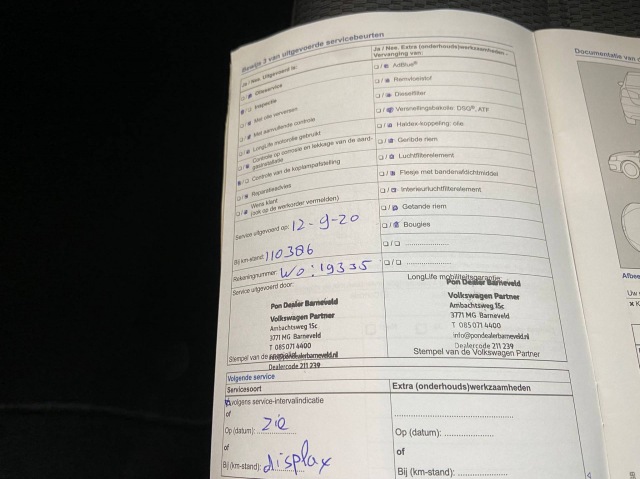 Bewijs 3 van uitgevoerde servicebeurten
Ja / Nee. Uitgevoerd is:
Olieservice
Inspectie
Met olie verversen
Met aanvullende controle
LongLife motorolie gebruikt
Controle op corrosie en lekkage van de aard-
gasinstallatie
Controle van de koplampafstelling
Reparatieadvies
Wens klant
(ook op de werkorder vermelden)
Service uitgevoerd op: 12-9-20
Bij km-stand: 110386
Rekeningnummer: WO: 19335
Service uitgevoerd door:
Pon Dealer Barneveld
Volkswagen Partner
Ambachtsweg 15c
3771 MG Barneveld
T 085 071 4400
info@pondealerbarneveld.nl
Stempel van de
Dealercode 211 239
Ja / Nee. Extra (onderhouds)werkzaamheden -
Vervanging van:
AdBlue®
Remvloeistof
Dieselfilter
Versnellingsbakolie: DSG®, ATF
Haldex-koppeling: olie
Geribde riem
Luchtfilterelement
Flesje met bandenafdichtmiddel
Interieurluchtfilterelement
Getande riem
Bougies
LongLife mobiliteitsgarantie:
Pon Dealer Barneveld
Volkswagen Partner
Ambachtsweg 15c
3771 MG Barneveld
T 085 071 4400
info@pondealerbarneveld.nl
Dealercode 211 239
Stempel van de Volkswagen Partner
Volgende service
Servicesoort
volgens service-intervalindicatie
of
Op (datum): zie
of
Bij (km-stand): display
Extra (onderhouds)werkzaamheden
Op (datum):
of
Bij (km-stand):
Documentatie van
Uw